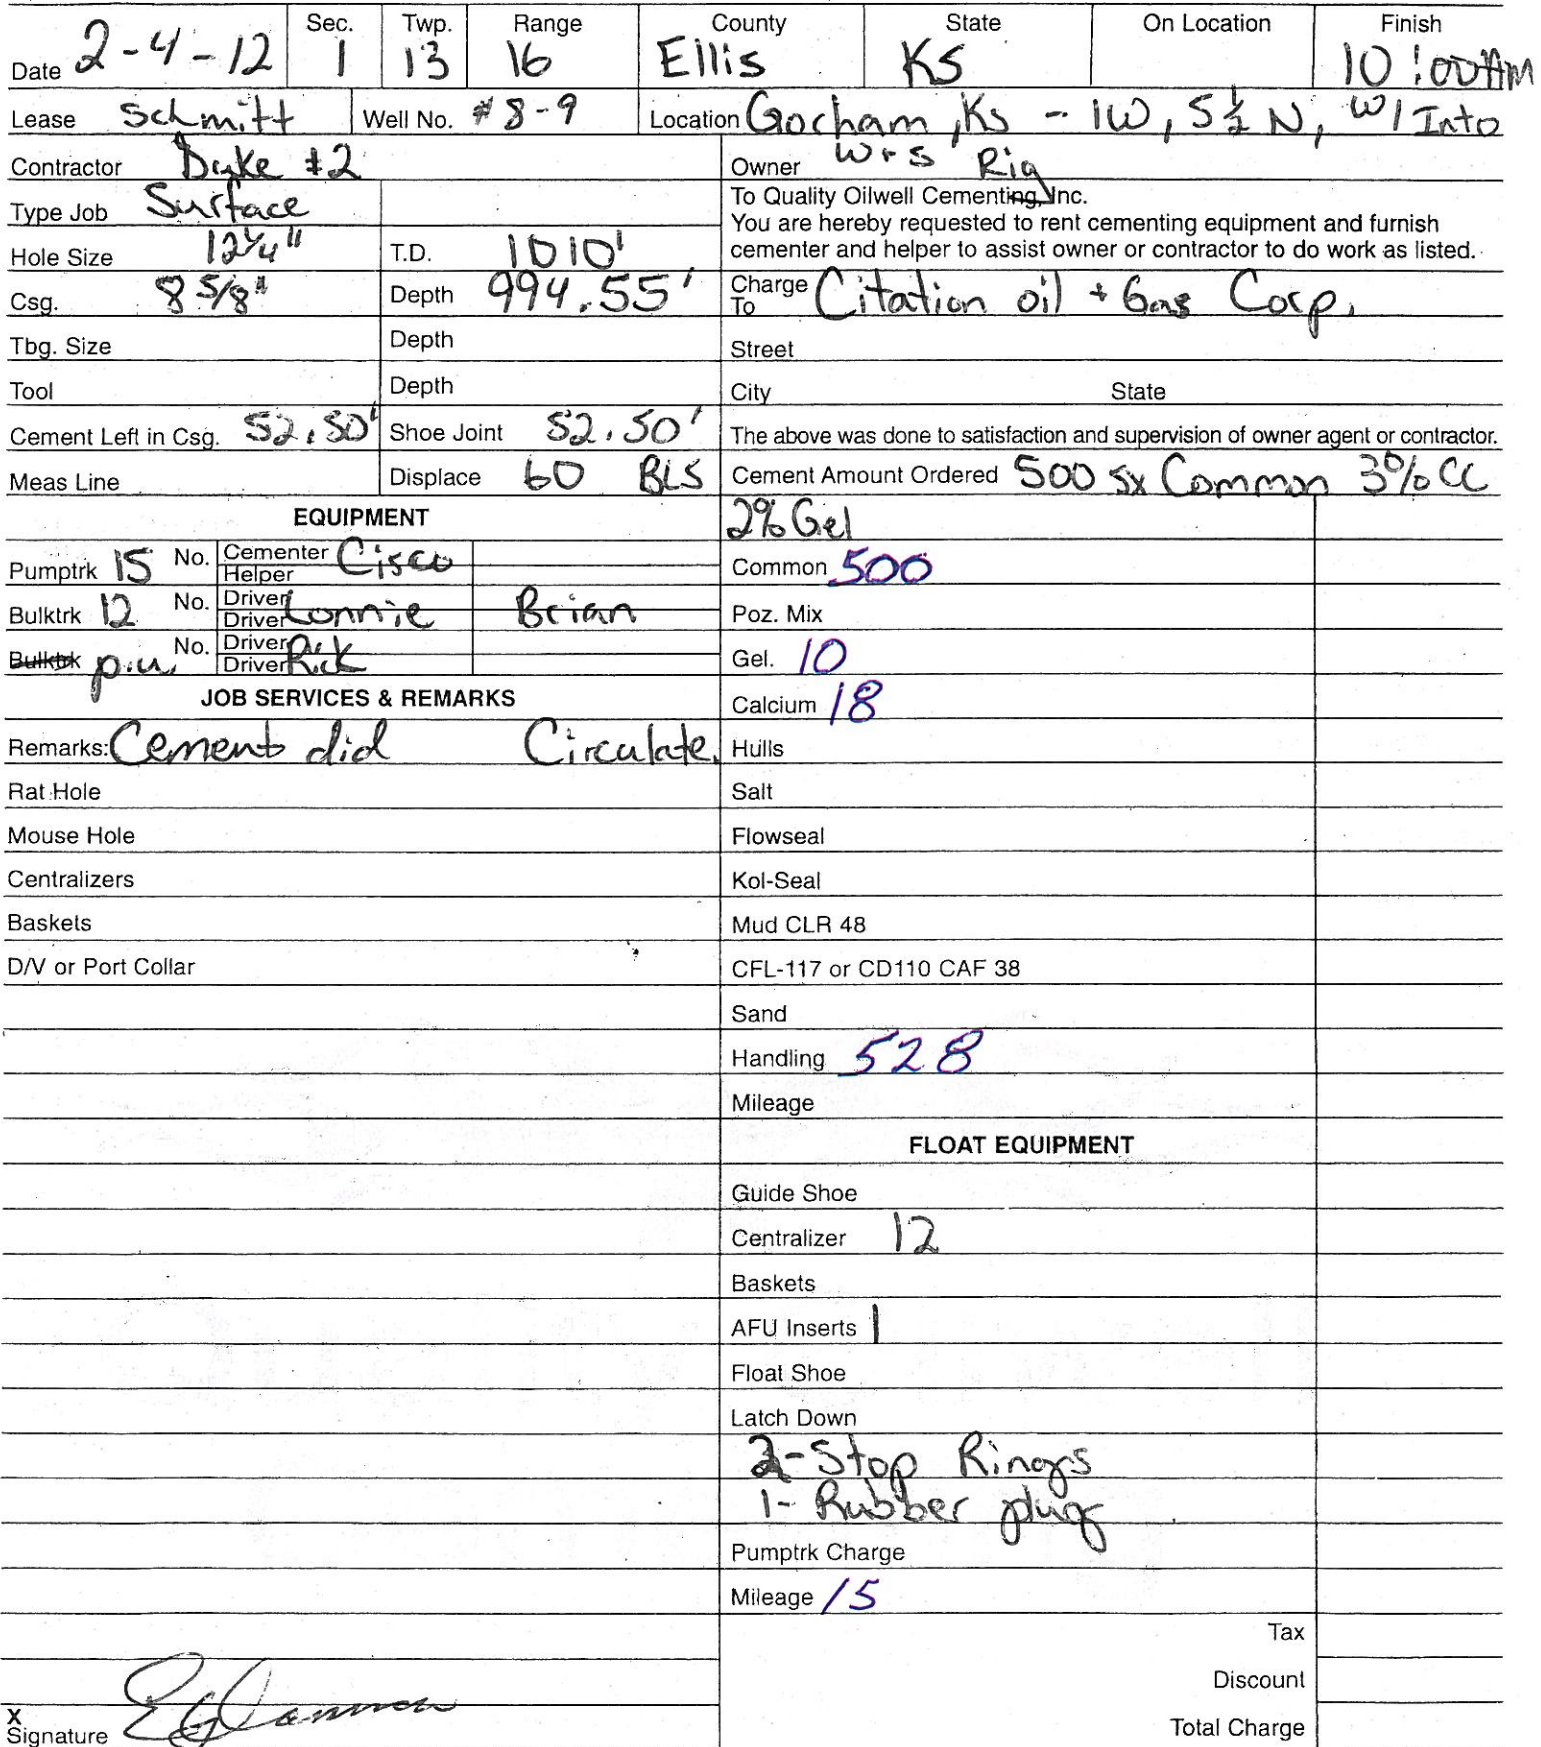 Sec. Twp. Range County State On Location Finish
Date 2-4-12 1 13 16 Ellis KS 10:00AM
Lease Schmitt Well No. #8-9 Location Gorham, Ks - 1W, 5½ N, W/Into
Contractor Duke #2 Owner W+S Rig
Type Job Surface
To Quality Oilwell Cementing, Inc.
You are hereby requested to rent cementing equipment and furnish
cementer and helper to assist owner or contractor to do work as listed.
Hole Size 12¼" T.D. 1010'
Csg. 8 5/8" Depth 994.55' Charge To Citation oil + Gas Corp.
Tbg. Size Depth Street
Tool Depth City State
Cement Left in Csg. 52.50' Shoe Joint 52.50' The above was done to satisfaction and supervision of owner agent or contractor.
Meas Line Displace 60 BLS Cement Amount Ordered 500 sx Common 3% CC
EQUIPMENT 2% Gel
Pumptrk 15 No. Cementer Helper Cisco Common 500
Bulktrk 12 No. Driver Driver Lonnie Brian Poz. Mix
Bulktrk p.u. No. Driver Driver Rick Gel. 10
JOB SERVICES & REMARKS Calcium 18
Remarks: Cement did Circulate. Hulls
Rat Hole Salt
Mouse Hole Flowseal
Centralizers Kol-Seal
Baskets Mud CLR 48
D/V or Port Collar CFL-117 or CD110 CAF 38
Sand
Handling 528
Mileage
FLOAT EQUIPMENT
Guide Shoe
Centralizer 12
Baskets
AFU Inserts 1
Float Shoe
Latch Down
2-Stop Rings
1- Rubber plug
Pumptrk Charge
Mileage 15
Tax
Discount
X
Signature Total Charge